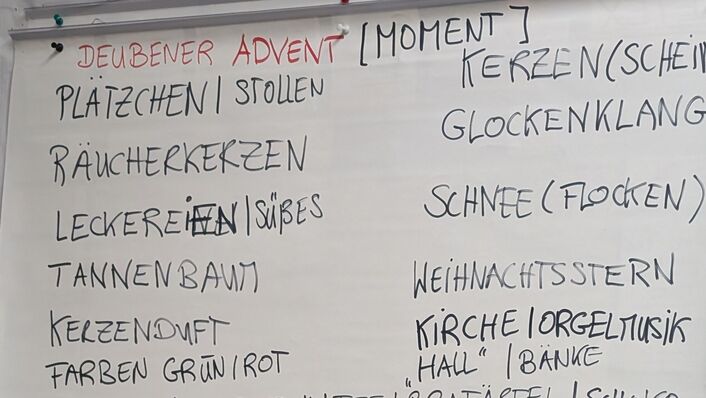 DEUBENER ADVENT [MOMENT]
PLÄTZCHEN | STOLLEN
RÄUCHERKERZEN
LECKEREIEN | SÜßES
TANNENBAUM
KERZENDUFT
FARBEN GRÜN | ROT
KERZEN (SCHEIN
GLOCKENKLANG
SCHNEE (FLOCKEN)
WEIHNACHTSSTERN
KIRCHE | ORGELMUSIK
"HALL" | BÄNKE